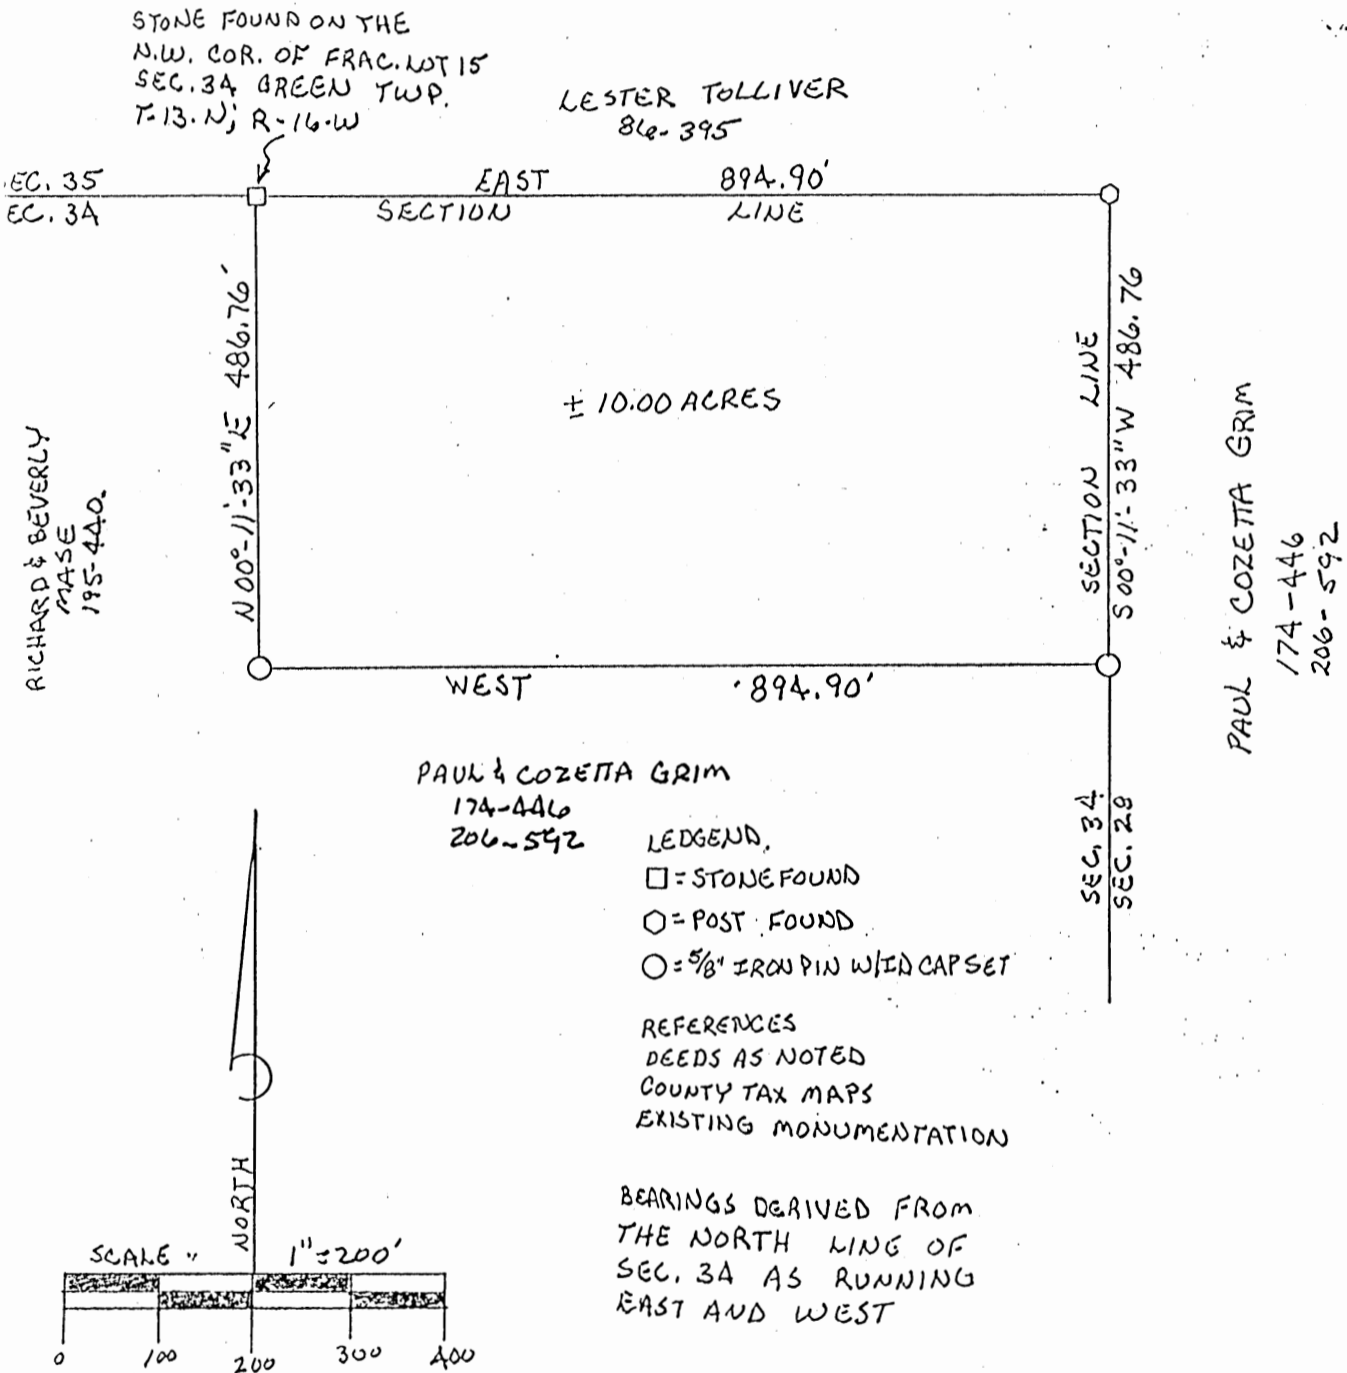 STONE FOUND ON THE
N.W. COR. OF FRAC. LOT 15
SEC. 34 GREEN TWP.
T-13-N; R-16-W
LESTER TOLLIVER
86-395
EC. 35
EC. 34
EAST 894.90'
SECTION LINE
N 00°-11'-33" E 486.76'
± 10.00 ACRES
SECTION LINE
S 00°-11'-33" W 486.76
RICHARD & BEVERLY
MASE
195-440.
PAUL & COZETTA GRIM
174-446
206-592
WEST 894.90'
PAUL & COZETTA GRIM
174-446
206-592
SEC. 34
SEC. 28
LEDGEND.
□ = STONE FOUND
⬡ = POST FOUND
○ = 5/8" IRON PIN W/ID CAP SET
REFERENCES
DEEDS AS NOTED
COUNTY TAX MAPS
EXISTING MONUMENTATION
NORTH
BEARINGS DERIVED FROM
THE NORTH LINE OF
SEC. 34 AS RUNNING
EAST AND WEST
SCALE " 1" = 200'
0 100 200 300 400